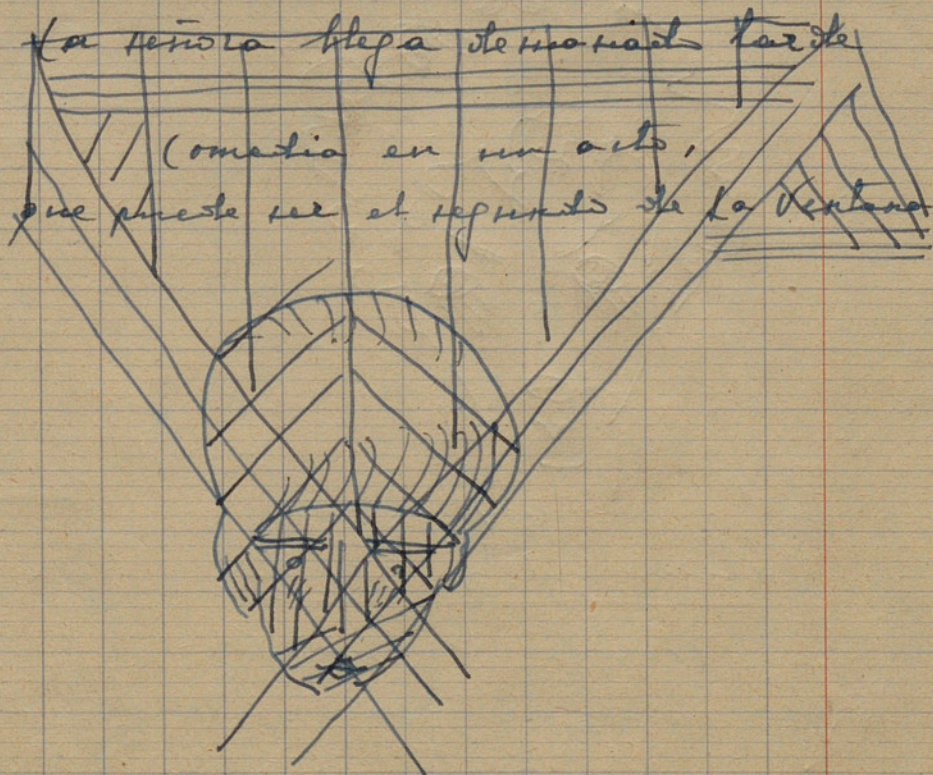 La señora llega demasiado tarde
Comedia en un acto,
que puede ser el segundo de La Ventana